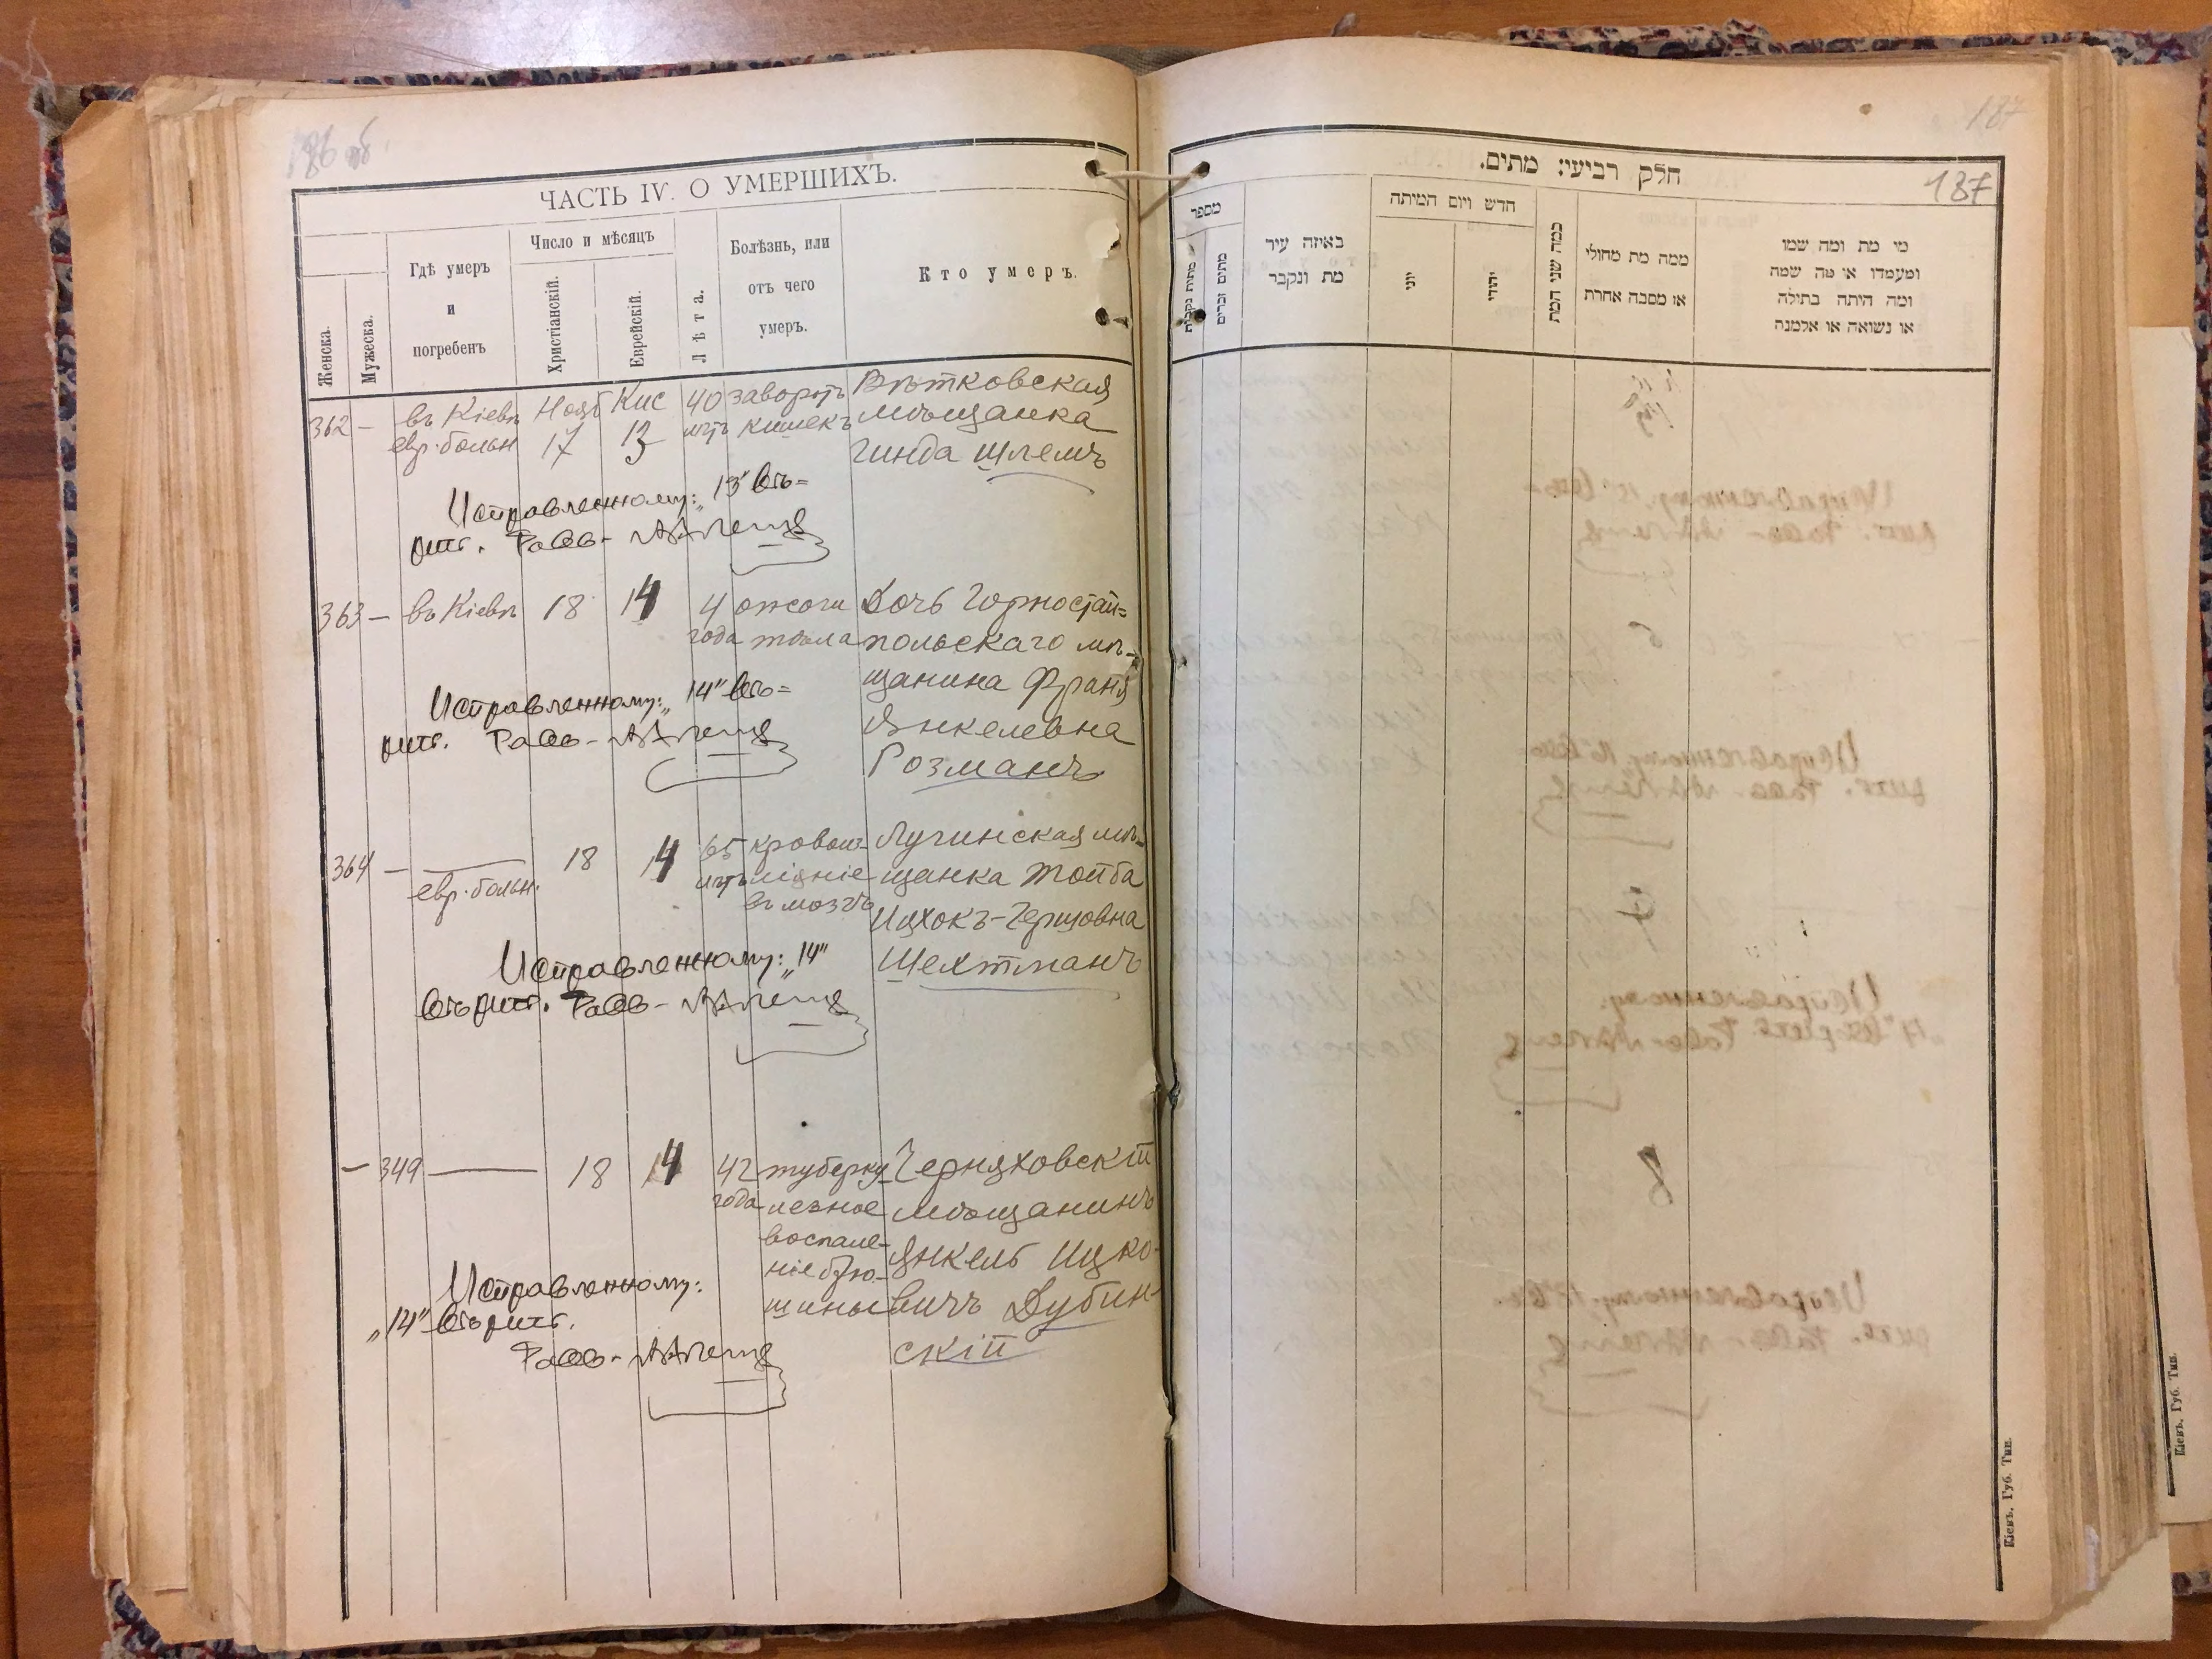 186 об.
ЧАСТЬ IV. О УМЕРШИХЪ.
Женска.
Мужеска.
Гдѣ умеръ
и
погребенъ
Число и мѣсяцъ
Христіанскій.
Еврейскій.
Лѣта.
Болѣзнь, или
отъ чего
умеръ.
Кто умеръ.
362 — въ Кіевѣ Нояб Кис 40 заворотъ Вѣтковская
евр. больн 17 13 лѣтъ кишекъ мѣщанка
Гинда Шлемъ
Исправленному: „13" вѣ=
рить. Равв-
363 — въ Кіевѣ 18 14 4 ожоги Дочь Горностай=
года тѣла польскаго мѣ-
щанина Франя
Янкелевна
Розманъ
Исправленному: „14" вѣ=
рить. Равв-
364 — — 18 14 65 кровоиз- Лучинская мѣ-
евр. больн. лѣтъ ліяніе щанка Тойба
въ мозгъ Ицхокъ-Гершовна
Шехтманъ
Исправленному: „14"
вѣрить. Равв-
— 349 — 18 14 42 туберку- Черняховскій
года лезное мѣщанинъ
воспале- Янкель Ицко-
ніе брю- вичъ Дубин-
шины скій
Исправленному:
„14" вѣрить.
Равв-
187
187
חלק רביעי: מתים.
מספר
מתות נקבות
מתים זכרים
באיזה עיר
מת ונקבר
חדש ויום המיתה
יוני
יהודי
כמה שני המת
ממה מת מחולי
או מסבה אחרת
מי מת ומה שמו
ומעמדו או מה שמה
ומה היתה בתולה
או נשואה או אלמנה
Кіевъ. Губ. Тип.
Кіевъ. Губ. Тип.